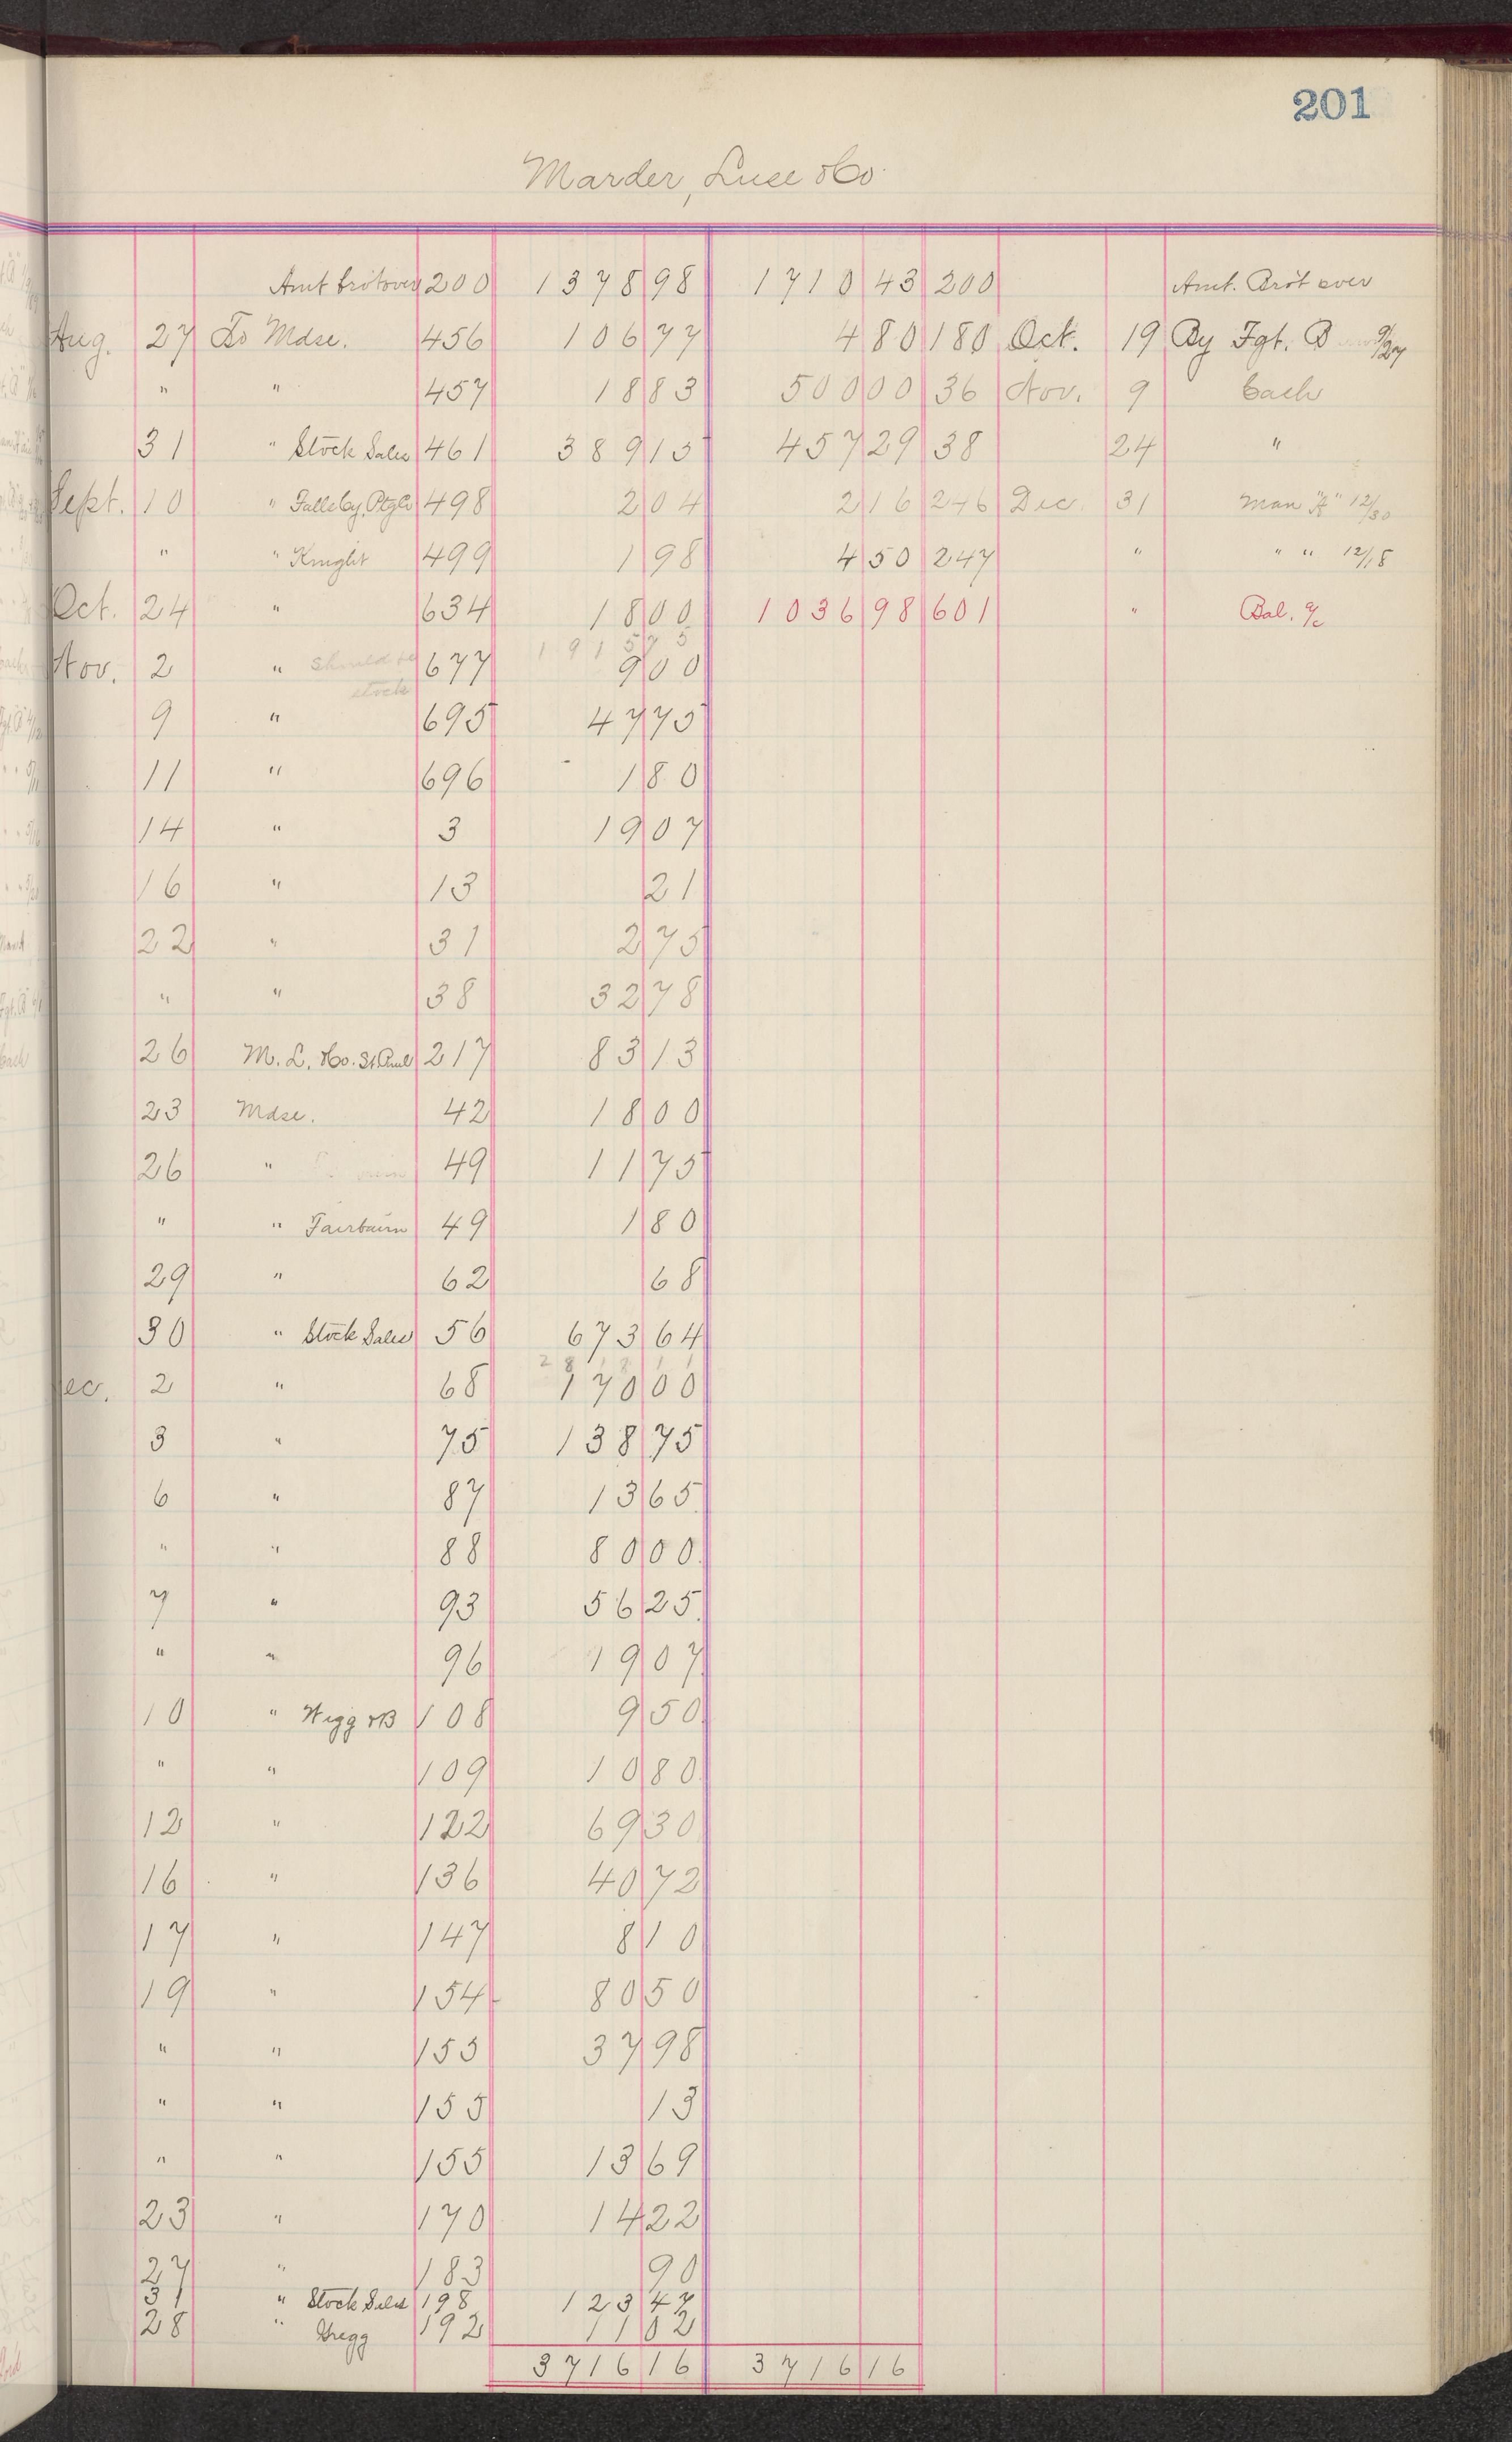 201
Marder, Luse & Co.
Amt brôt over 200 1378 98 1710 43 200 Amt. Brôt over
Aug. 27 To Mdse. 456 106 77 4 80 180 Oct. 19 By Fgt. B 9/27
" " 457 18 83 500 00 36 Nov. 9 Cash
31 " Stock Sales 461 389 15 457 29 38 24 "
Sept. 10 " 498 2 04 2 16 246 Dec. 31 Man "A" 12/30
" " Knight 499 1 98 4 50 247 " " " 12/18
Oct. 24 " 634 18 00 1036 98 601 " Bal. a/c
1915 75
Nov. 2 " should be 677 9 00
stock
9 " 695 47 75
11 " 696 1 80
14 " 3 19 07
16 " 13 21
22 " 31 2 75
" " 38 32 78
26 M. L. & Co. St. Paul 217 83 13
23 Mdse. 42 18 00
26 " 49 11 75
" " Fairbairn 49 1 80
29 " 62 68
30 " Stock Sales 56 673 64
2818 11
ec. 2 " 68 170 00
3 " 75 138 75
6 " 87 13 65
" " 88 80 00
7 " 93 56 25
" " 96 19 07
10 " Wegg & B 108 9 50
" " 109 10 80
12 " 122 69 30
16 " 136 40 72
17 " 147 8 10
19 " 154 80 50
" " 155 37 98
" " 155 13
" " 155 13 69
23 " 170 14 22
27 " 183 90
31 " Stock Sales 198 123 47
28 " Gregg 192 11 02
3716 16 3716 16